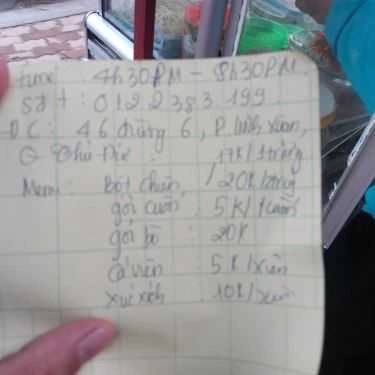 time 4h30PM - 8h30PM.
Sđt : 0122 383 199.
ĐC : 46 đường 6, P linh xuân,
Q Thủ Đức
Menu : Bột chiên, 17K/1 trứng / 20K/trứng
gỏi cuốn : 5K/1 cuốn
gỏi bò : 20K
Cá viên : 5K/xiên
xúc xích : 10K/xiên